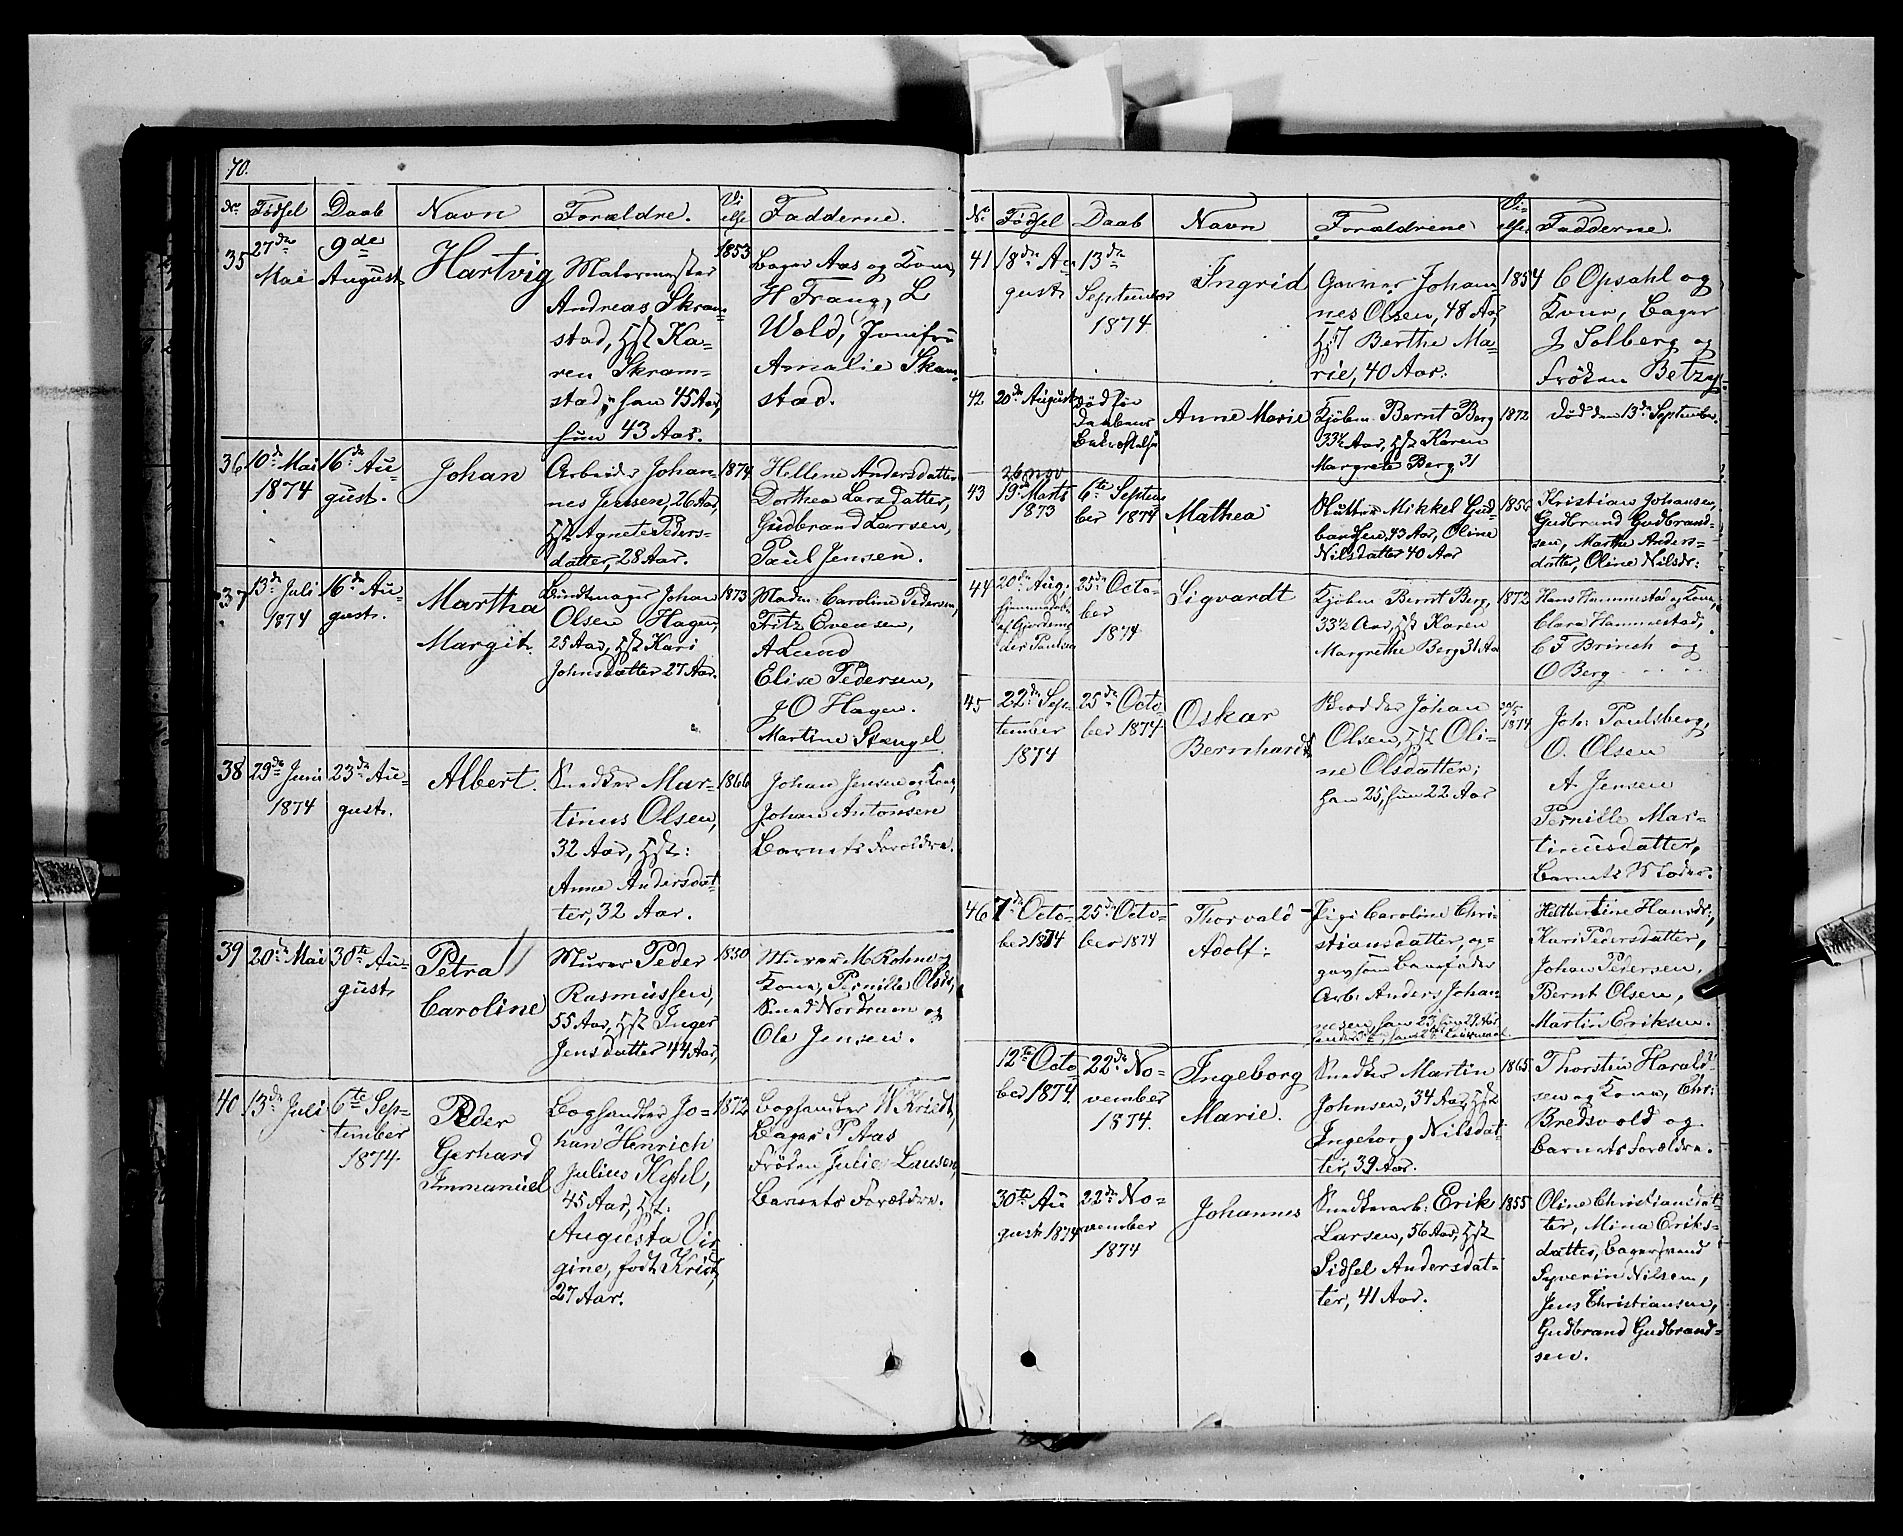 70.
No. Fødsel Daab Navn Forældre. Vielse Fadderne.
35 27de Mai 9de August Hartvig 1853
Malermester
Andreas Skram-
stad, Hst Ka-
ren Skram-
stad, han 45 Aar,
hun 43 Aar.
Bager Aas og Kone,
H Frang, L
Wold, Jomfru
Amalie Skram-
stad.
36 10de Mai 1874 16de Au-
gust. Johan 1874
Arbeider Johan-
nes Jensen, 26 Aar,
Hst Agnete Peders-
datter, 28 Aar.
Hellene Andersdatter
Dorthea Larsdatter,
Gudbrand Larsen,
Paul Jensen.
37 13de Juli 1874 16de Au-
gust. Martha
Margit. 1873
Bundtmager Johan
Olsen Hagen,
25 Aar, Hst Kari
Johnsdatter 27 Aar.
Madm. Caroline Pedersen,
Fritz Evensen,
A Lund
Elise Pedersen,
J O Hagen.
Martine Stengel
38 29de Juni 1874 23de Au-
gust. Albert. 1866
Snedker Mar-
tinus Olsen,
32 Aar, Hst:
Anne Andersdat-
ter, 32 Aar.
Johan Jensen og Kone,
Johan Antonsen
Barnets Foreldre.
39 20de Mai 30te Au-
gust Petra
Caroline 1850
Murer Peder
Rasmussen,
55 Aar, Hst Inger
Jensdatter 44 Aar,
Murer M. Rohne og
Kone, Pernille Olsdr,
Smed Nordrum og
Ole Jensen.
40 13de Juli 6te Sep-
tember
1874 Peder
Gerhard
Immanuel 1872
Boghandler Jo-
han Henrich
Julius
45 Aar, Hst:
Augusta Vir-
gine, født Kridt,
27 Aar.
Boghandler W. Kriedt,
Bager P Aas
Frøken Julie Lausen,
Barnets Forældre.
No Fødsel Daab Navn Forældrene Vielse Fadderne.
41 18de Au-
gust 13de
September
1874 Ingrid 1854
Garver Johan-
nes Olsen, 48 Aar,
Hst Berthe Ma-
rie, 40 Aar.
C Opsahl og
Kone, Bager
J Solberg og
Frøken Betzy.
42 20de August Død før
Daabens
Bekræftelse Anne Marie 1872
Kjøbm. Bernt Berg
33½ Aar, Hst Karen
Margrete Berg, 31
død den 13de September.
43 26 nov
19de Marts
1873 6te Septem-
ber 1874 Mathea 1856
Slutter Mikkel Gud-
bandsen, 43 Aar, Oline
Nilsdatter 40 Aar
Kristian Johansen,
Gudbrand Gudbrand-
sen, Marthe Anders-
datter, Oline Nilsdr:
44 20de Aug.
hjemmedøbt
af Gjordemo-
der Paulsen 25de Octo-
ber
1874 Sigvardt 1872
Kjøbm Bernt Berg,
33½ Aar, Hst Karen
Margrethe Berg 31 Aar
Hans Hammestad og Kone,
Clara Hammestad,
C F Brinch og
O Berg
45 22de Sep-
tember
1874 25de Octo-
ber 1874 Oskar
Bernhardt 1874
Johan
Olsen, Hst Oli-
ne Olsdatter;
han 25, hun 22 Aar
Joh. Paulsberg,
O. Olsen
A. Jensen
Pernille Mar-
tinusdatter,
Barnets Moder.
46 7de Octo-
ber 1874 25de Octo-
ber 1874 Thorvald
Adolf:
Pige Caroline Chri-
stiansdatter, op-
gav som Barnefader
Arb. Anders Johan-
nesen, han 23, hun 29 Aar
Heltbertine Hansdr,
Kari Pedersdatter,
Johan Pedersen,
Bernt Olsen,
Martin Eriksen.
12te Octo-
ber 1874 22de No-
vember
1874. Ingeborg
Marie. 1865
Snedker Martin
Johnsen, 34 Aar, Hst
Ingeborg Nilsdat-
ter, 39 Aar.
Thorsten Harald-
sen og Kone, Chr:
Bredvold og
Barnets Forældre.
30te Au-
gust 1874 22de No-
vember
1874 Johannes 1855
Snedkerarb: Erik
Larsen, 56 Aar, Hst
Sidsel Andersdat-
ter, 41 Aar.
Oline Christiansdat-
ter, Mina Eriks-
datter, Bagersvend
Syverin Nilsen,
Jens Christiansen,
Gudbrand Gudbrand-
sen.